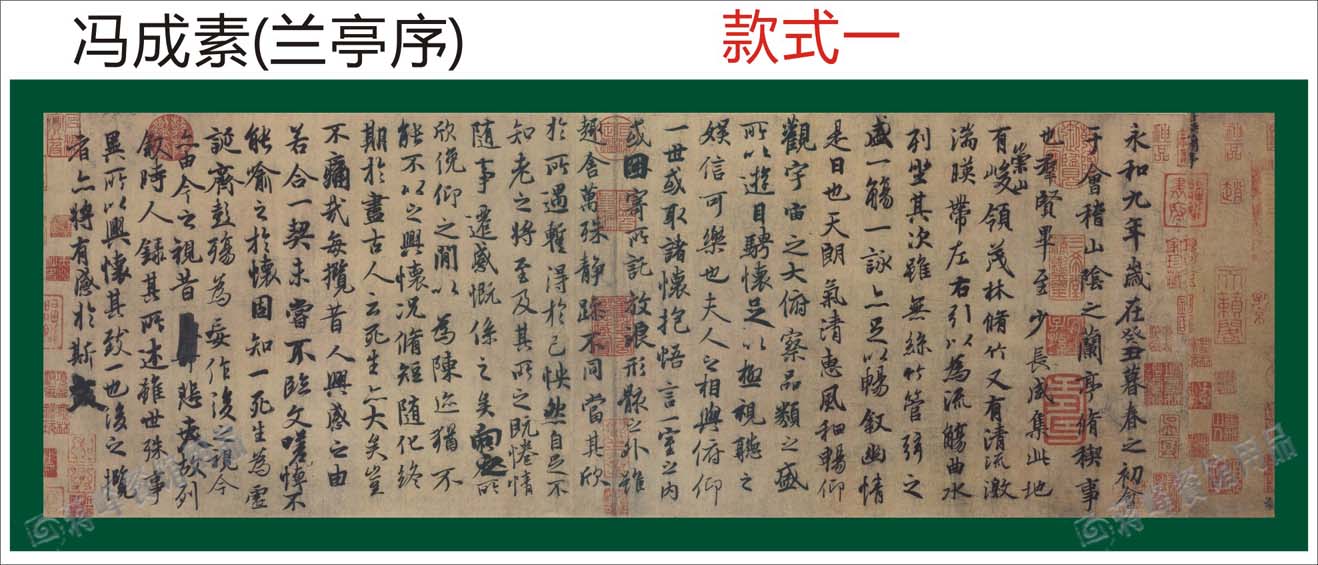 冯成素(兰亭序)
款式一
永和九年歲在癸丑暮春之初會
于會稽山陰之蘭亭脩稧事
也羣賢畢至少長咸集此地
有崇山峻領茂林脩竹又有清流激
湍暎帶左右引以為流觴曲水
列坐其次雖無絲竹管弦之
盛一觴一詠亦足以暢敘幽情
是日也天朗氣清惠風和暢仰
觀宇宙之大俯察品類之盛
所以遊目騁懷足以極視聽之
娛信可樂也夫人之相與俯仰
一世或取諸懷抱悟言一室之內
或因寄所託放浪形骸之外雖
趣舍萬殊靜躁不同當其欣
於所遇暫得於己怏然自足不
知老之將至及其所之既惓情
隨事遷感慨係之矣向之所
欣俛仰之間以為陳迹猶不
能不以之興懷況脩短隨化終
期於盡古人云死生亦大矣豈
不痛哉每攬昔人興感之由
若合一契未嘗不臨文嗟悼不
能喻之於懷固知一死生為虛
誕齊彭殤為妄作後之視今
亦由今之視昔悲夫故列
敘時人錄其所述雖世殊事
異所以興懷其致一也後之攬
者亦將有感於斯文